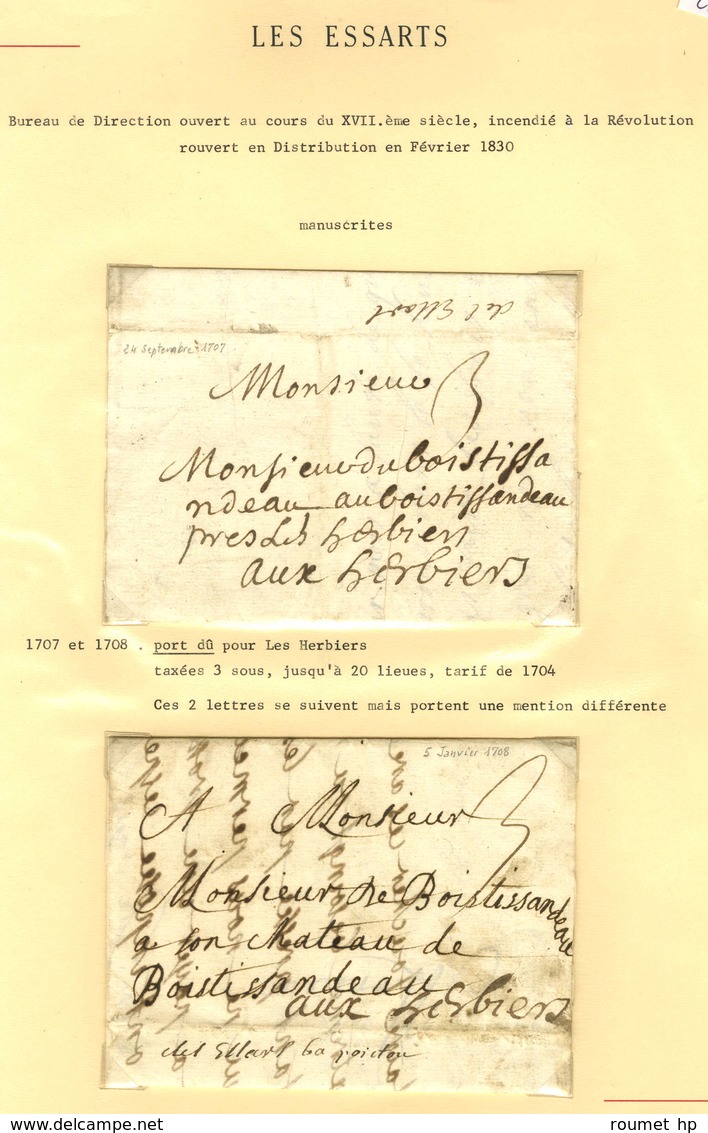 LES ESSARTS
Bureau de Direction ouvert au cours du XVII.ème siècle, incendié à la Révolution
rouvert en Distribution en Février 1830
manuscrites
del Essart
24 Septembre 1707
Monsieur 3
Monsieur du boistissa
ndeau au boistissandeau
pres Les herbiers
aux herbiers
1707 et 1708 . port dû pour Les Herbiers
taxées 3 sous, jusqu'à 20 lieues, tarif de 1704
Ces 2 lettres se suivent mais portent une mention différente
5 Janvier 1708
A Monsieur 3
Monsieur de Boistissandeau
a son chateau de
Boistissandeau
aux herbiers
des Essart poictou
roumet hp